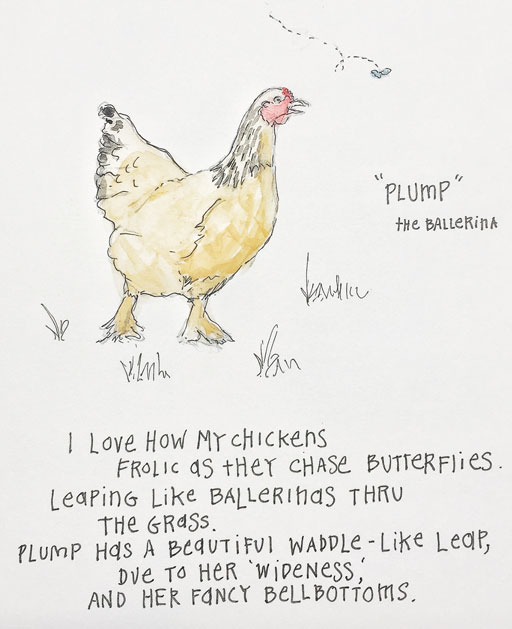 "PLUMP"
the BALLERINA
I LOVE HOW MY CHICKENS
FROLIC AS tHEY CHASE BUTTERFLIES.
LEAPING LIKE BALLERINAS THRU
THE GRASS.
PLUMP HAS A BEAUTIFUL WADDLE-LIKE LEAP,
DUE TO HER 'WIDENESS,'
AND HER FANCY BELLBOTTOMS.